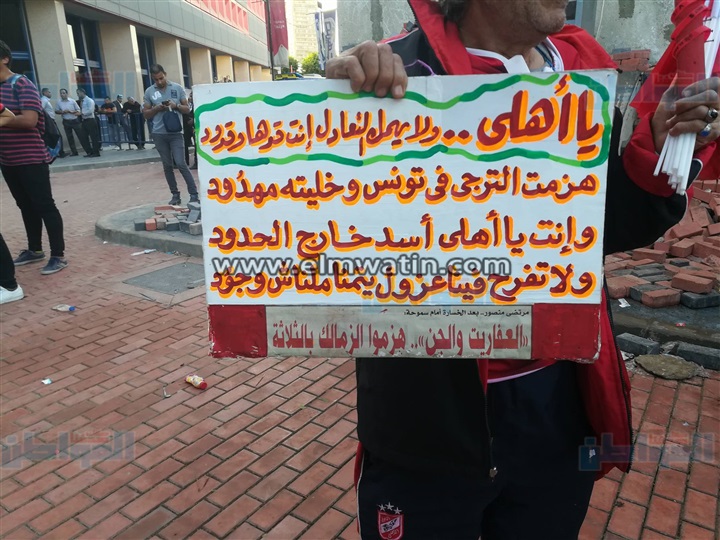 يا أهلى .. ولا يهمك التعادل إنت قدها وقدود
هزمت الترجى فى تونس وخليته مهدود
وإنت يا أهلى أسد خارج الحدود
ولا تفرح فينا عزول يتمنا ملناش وجود
www.elmwatin.com
مرتضى منصور.. بعد الخسارة أمام سموحة:
«العفاريت والجن».. هزموا الزمالك بالثلاثة
المواطن